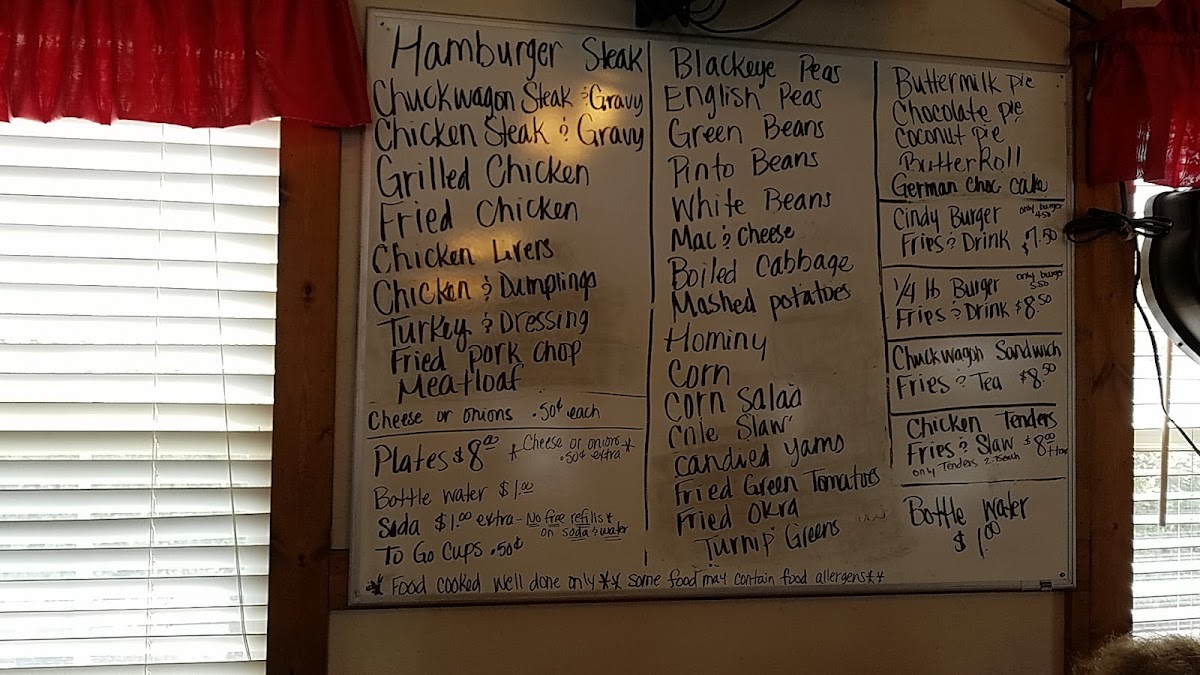 Hamburger Steak
Chuckwagon Steak & Gravy
Chicken Steak & Gravy
Grilled Chicken
Fried Chicken
Chicken Livers
Chicken & Dumplings
Turkey & Dressing
Fried pork chop
Meatloaf
Cheese or onions .50¢ each
Plates $8.00
* Cheese or onions *
.50¢ extra
Bottle water $1.00
Soda $1.00 extra - No free refills *
on soda & water
To Go Cups .50¢
Blackeye Peas
English Peas
Green Beans
Pinto Beans
White Beans
Mac & Cheese
Boiled Cabbage
Mashed potatoes
Hominy
Corn
Corn Salad
Cole Slaw
candied yams
Fried Green Tomatoes
Fried Okra
Turnip Greens
Buttermilk pie
Chocolate pie
Coconut pie
Butter Roll
German choc cake
Cindy Burger
only burger
4.50
Fries & Drink $7.50
1/4 lb Burger
only burger
5.50
Fries & Drink $8.50
Chuckwagon Sandwich
Fries & Tea $8.50
Chicken Tenders
Fries & Slaw $8.00
+tax
only Tenders
Bottle Water
$1.00
* Food cooked well done only ** some food may contain food allergens **